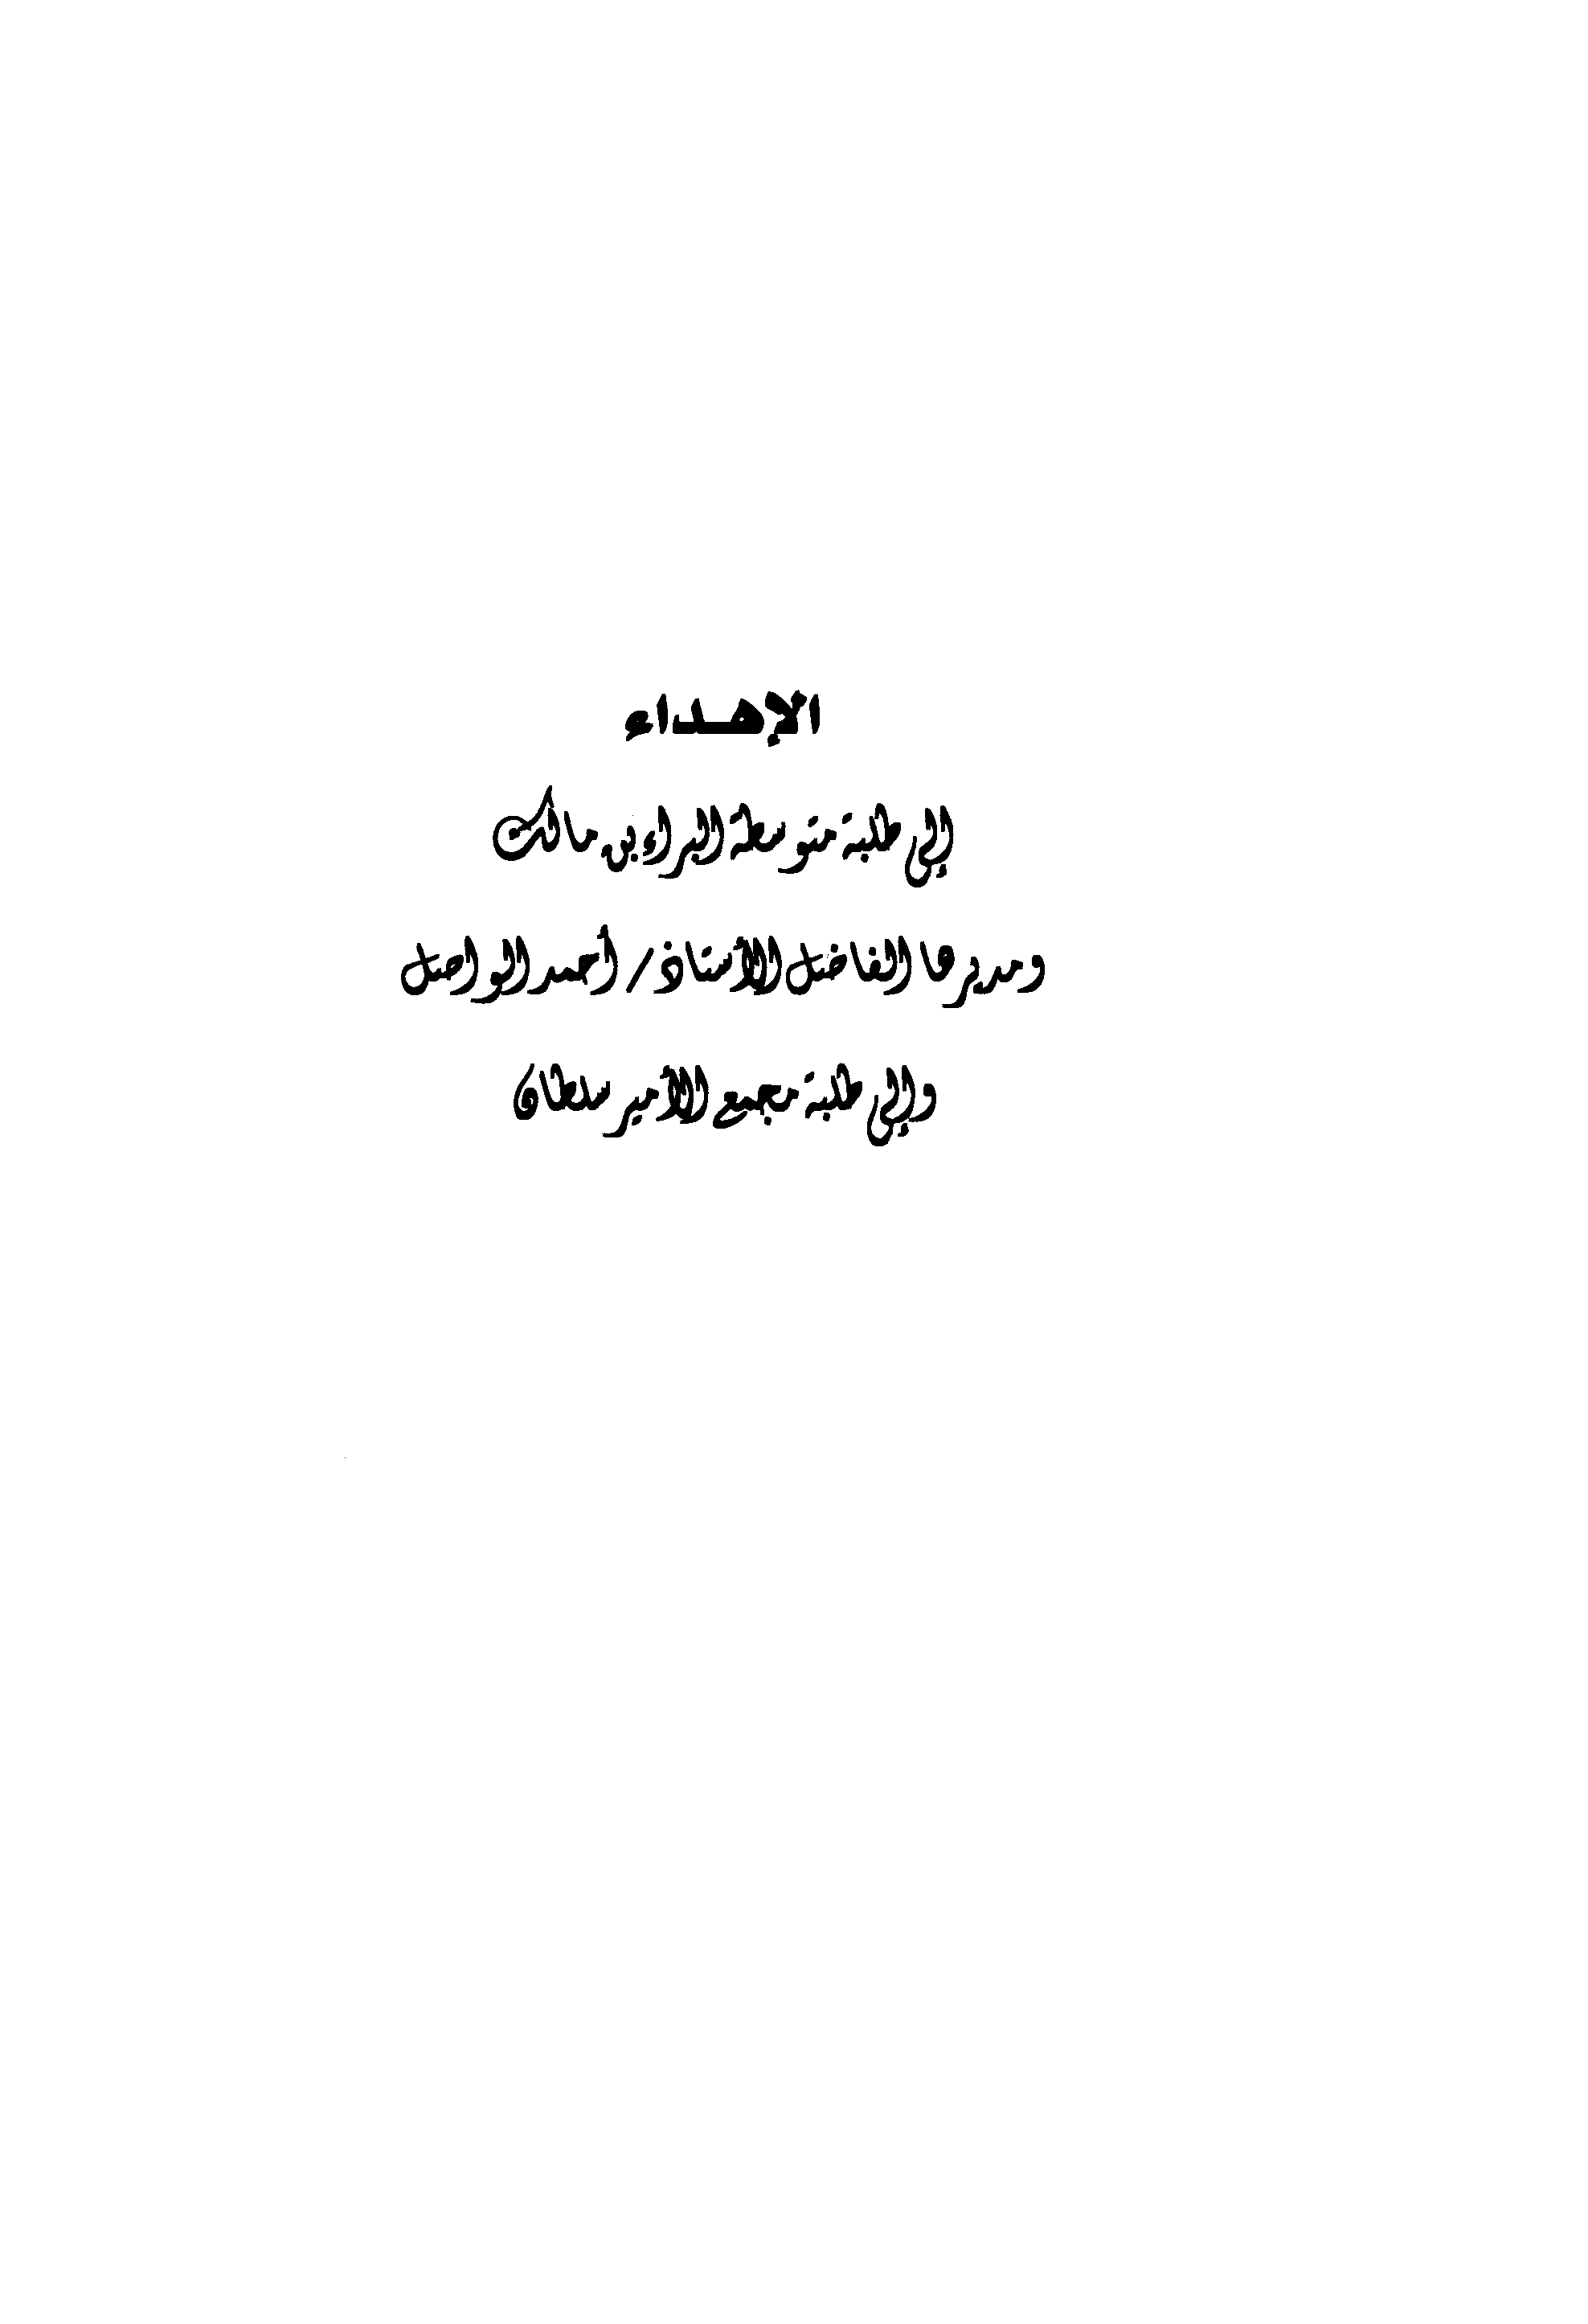 الإهداء
إلى طلبة متوسطة البراء بن مالك
ومديرها الفاضل الأستاذ / أحمد الواصل
وإلى طلبة مجمع الأمير سلطان